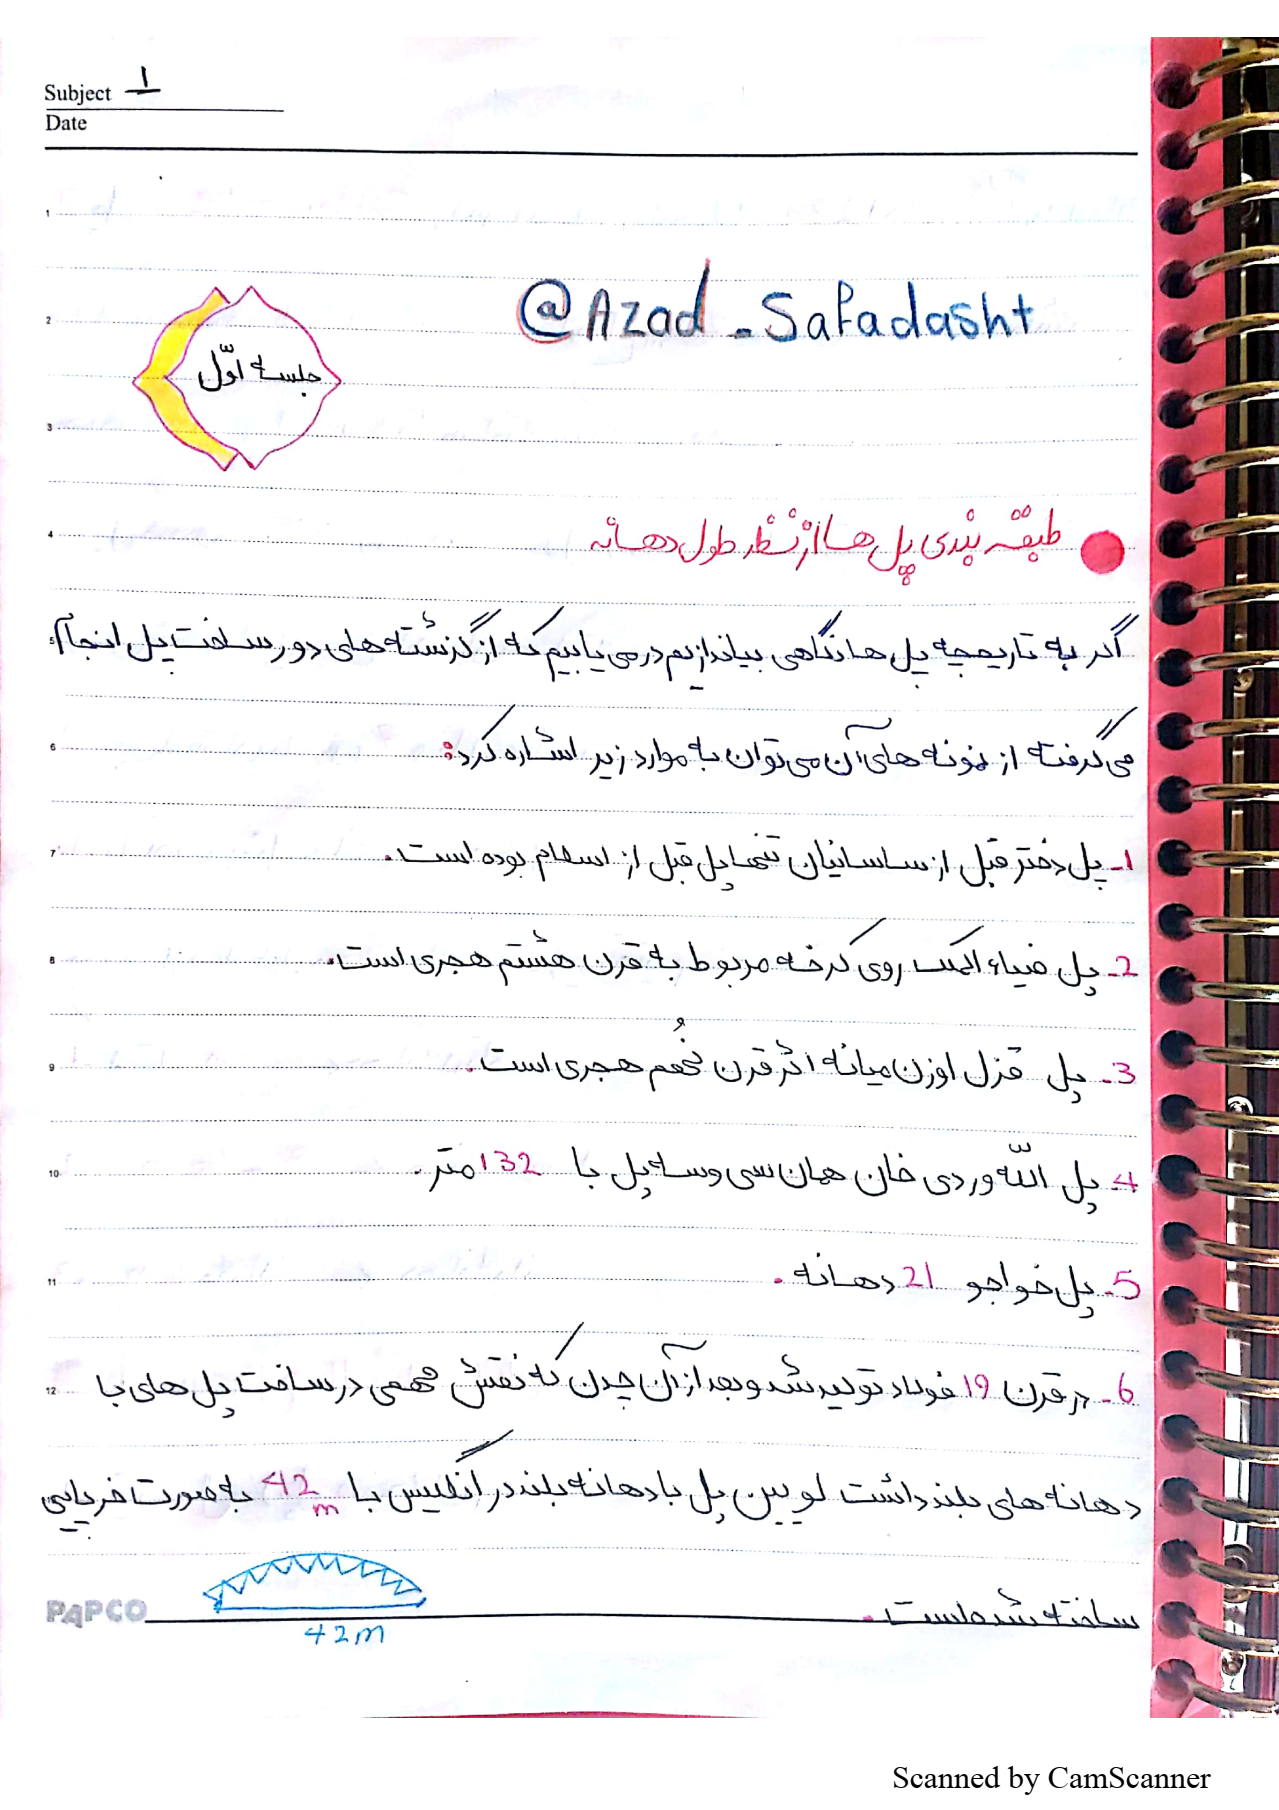 Subject ۱
Date
@Azad_Safadasht
جلسه اوّل
طبقه بندی پل ها از نظر طول دهانه
اگر به تاریخچه پل ها نگاهی بیاندازیم درمی یابیم که از گذشته های دور ساخت پل انجام
می گرفته از نمونه های آن می توان به موارد زیر اشاره کرد:
1- پل دختر قبل از ساسانیان تنها پل قبل از اسلام بوده است.
2- پل ضیاء الملک روی کرخه مربوط به قرن هشتم هجری است.
3- پل قزل اوزن میانه اثر قرن نُهم هجری است.
4- پل اللّه وردی خان همان سی و سه پل با 132 متر.
5- پل خواجو 21 دهانه.
6- در قرن 19 فولاد تولید شد و بعد از آن چدن که نقش مهمی در ساخت پل های با
دهانه های بلند داشت اولین پل با دهانه بلند در انگلیس با 42m به صورت خرپایی
ساخته شده است.
42m
PAPCO
1
2
3
4
5
6
7
8
9
10
11
12
Scanned by CamScanner